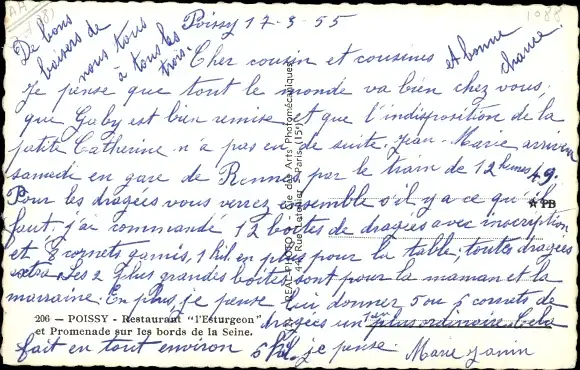 Poissy 17-3-55
De bons
baisers de
nous tous
à tous les
trois.
et bonne
chance.
Cher cousin et cousines
Je pense que tout le monde va bien chez vous,
que Gaby est bien remise et que l'indisposition de la
petite Catherine n'a pas eu de suite. Jean-Marie arrivera
samedi en gare de Rennes par le train de 12 heures 49.
Pour les dragées vous verrez ensemble s'il y a ce qu'il
faut, j'ai commandé 12 boîtes de dragées avec inscription
et 8 cornets garnis, 1 kil. en plus pour la table, toutes dragées
extra. Les 2 plus grandes boîtes sont pour la maman et la
marraine. En plus, je pense lui donner 5 ou 6 cornets de
dragées un peu plus ordinaire. Cela
fait en tout environ 6 kil. je pense. Marie Janin
206 — POISSY - Restaurant "l'Esturgeon"
et Promenade sur les bords de la Seine.
des Arts Photomécaniques
Paris (15e)
PB